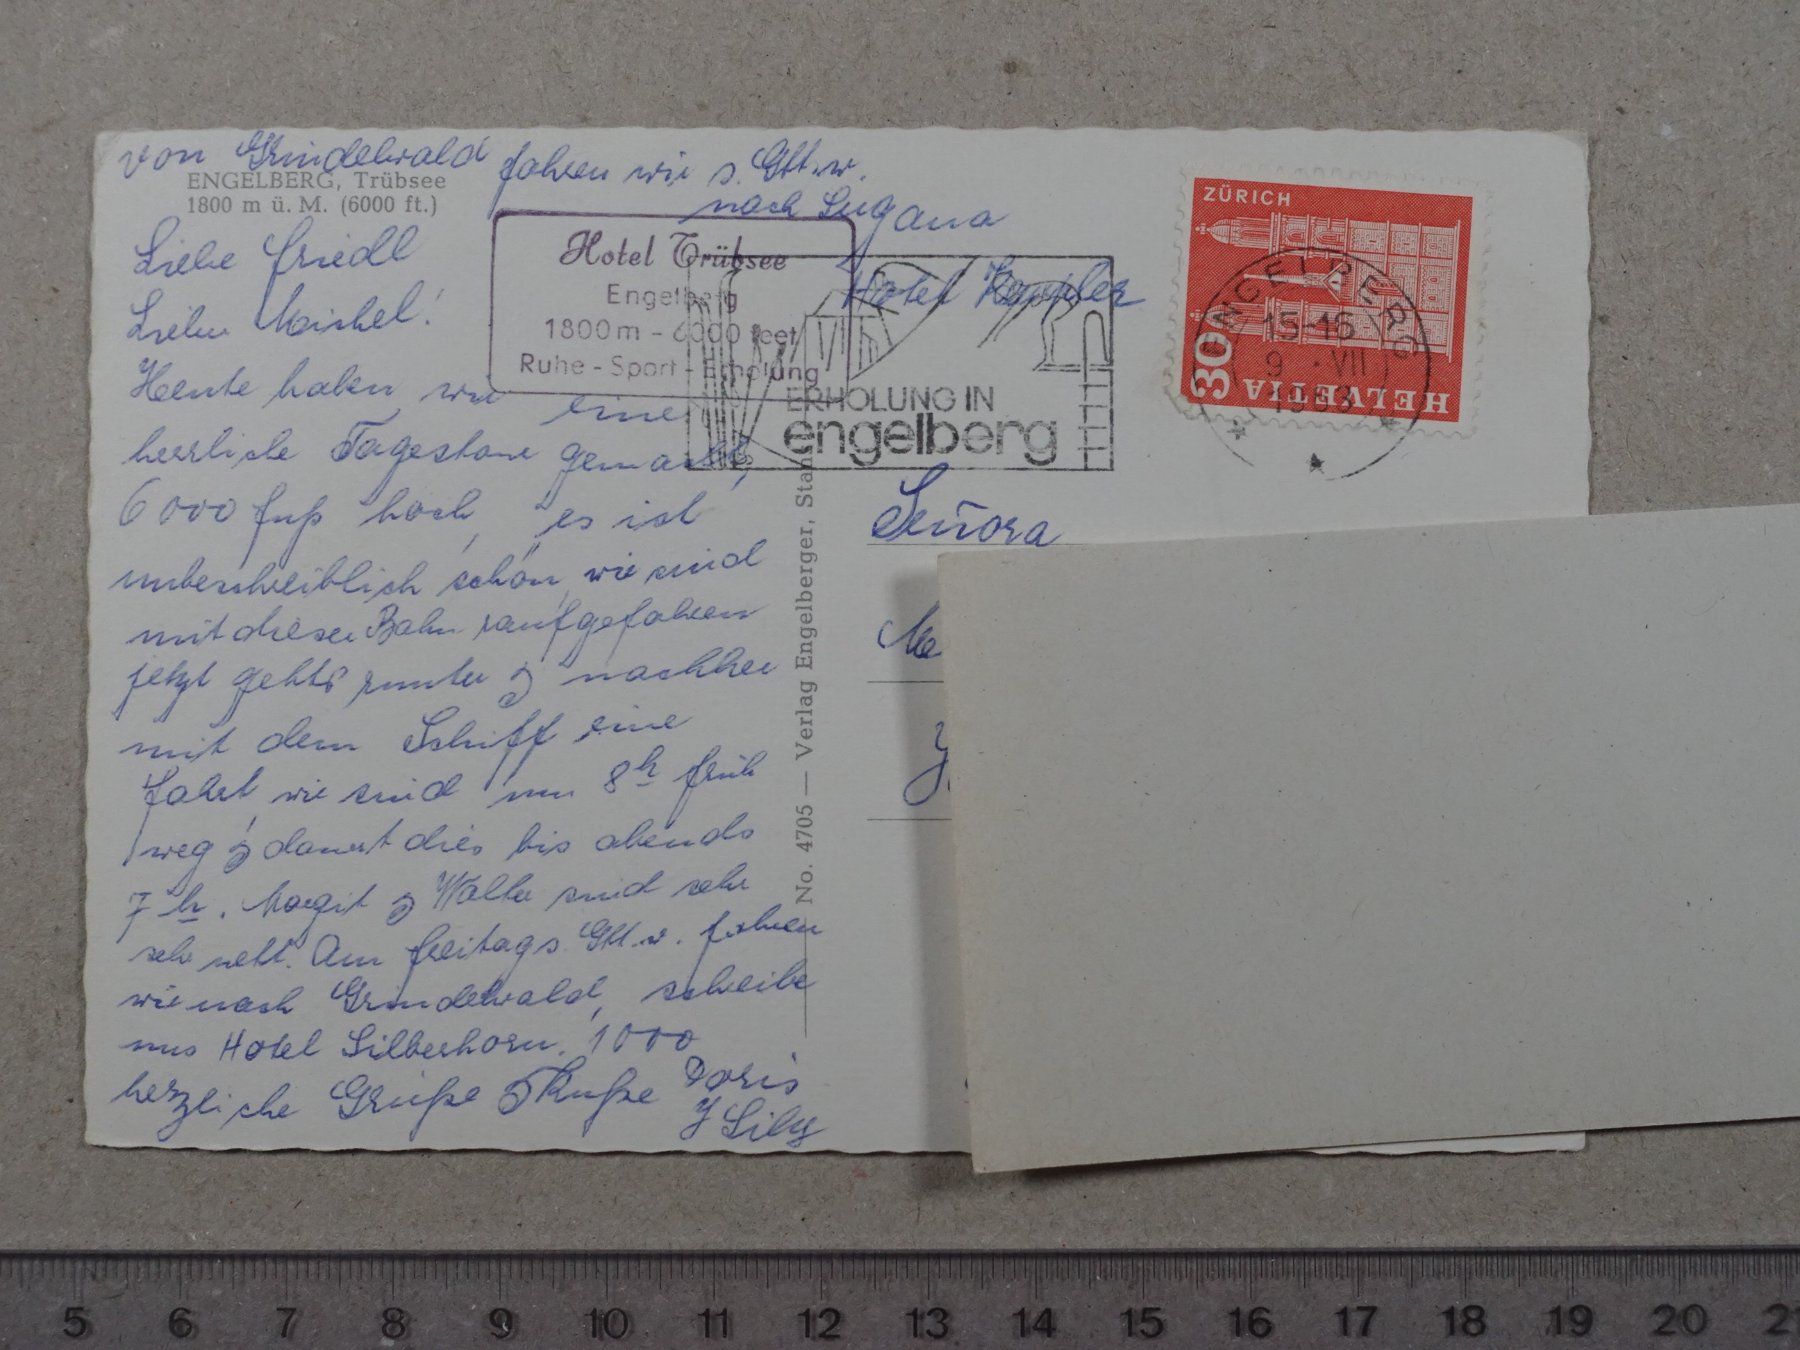 von Grindelwald fahren wir s. Gtt. w.
nach Lugano
ENGELBERG, Trübsee
1800 m ü. M. (6000 ft.)
Hotel Trübsee
Engelberg
1800 m - 6000 feet
Ruhe - Sport - Erholung
Hotel
ERHOLUNG IN
engelberg
ZÜRICH
30
HELVETIA
ENGELBERG
15-16
9. VII
Liebe Friedl
Lieber Michel!
Heute haben wir eine
herrliche Tagestour gemacht,
6000 Fuß hoch, es ist
unbeschreiblich schön, wir sind
mit dieser Bahn raufgefahren
jetzt gehts runter & nachher
mit dem Schiff eine
Fahrt, wir sind um 8h früh
weg & dauert dies bis abends
7 h. Margit & Walter sind sehr
sehr nett. Am Freitag s. Gtt. w. fahren
wir nach Grindelwald, schreibe
uns Hotel Silberhorn. 1000
herzliche Grüße & Küße Doris
& Lily
No. 4705 — Verlag Engelberger, Stan
Señora